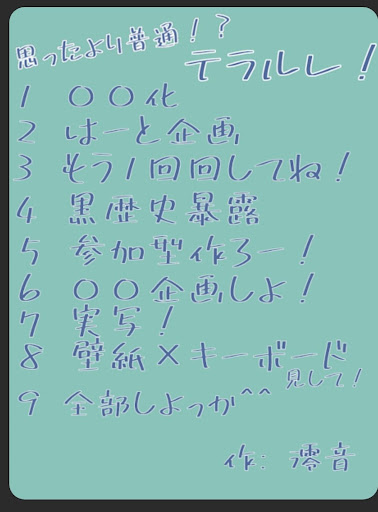 思ったより普通！？
テラルレ！
1 〇〇化
2 はーと企画
3 もう1回回してね！
4 黒歴史暴露
5 参加型作ろー！
6 〇〇企画しよ！
7 実写！
8 壁紙×キーボード
見して！
9 全部しよっか^^
作: 澪音